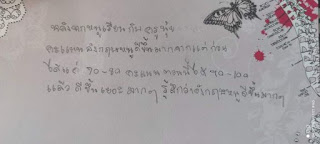 หลังจากหนูเรียนกับครูนุ้ย
คะแนนอังกฤษหนูดีขึ้นมากจากแต่ก่อน
ได้แค่ 70-80 คะแนน ตอนนี้ได้ 90-100
แล้ว ดีขึ้นเยอะมากๆ รู้สึกว่าอังกฤษหนูดีขึ้นมากๆ